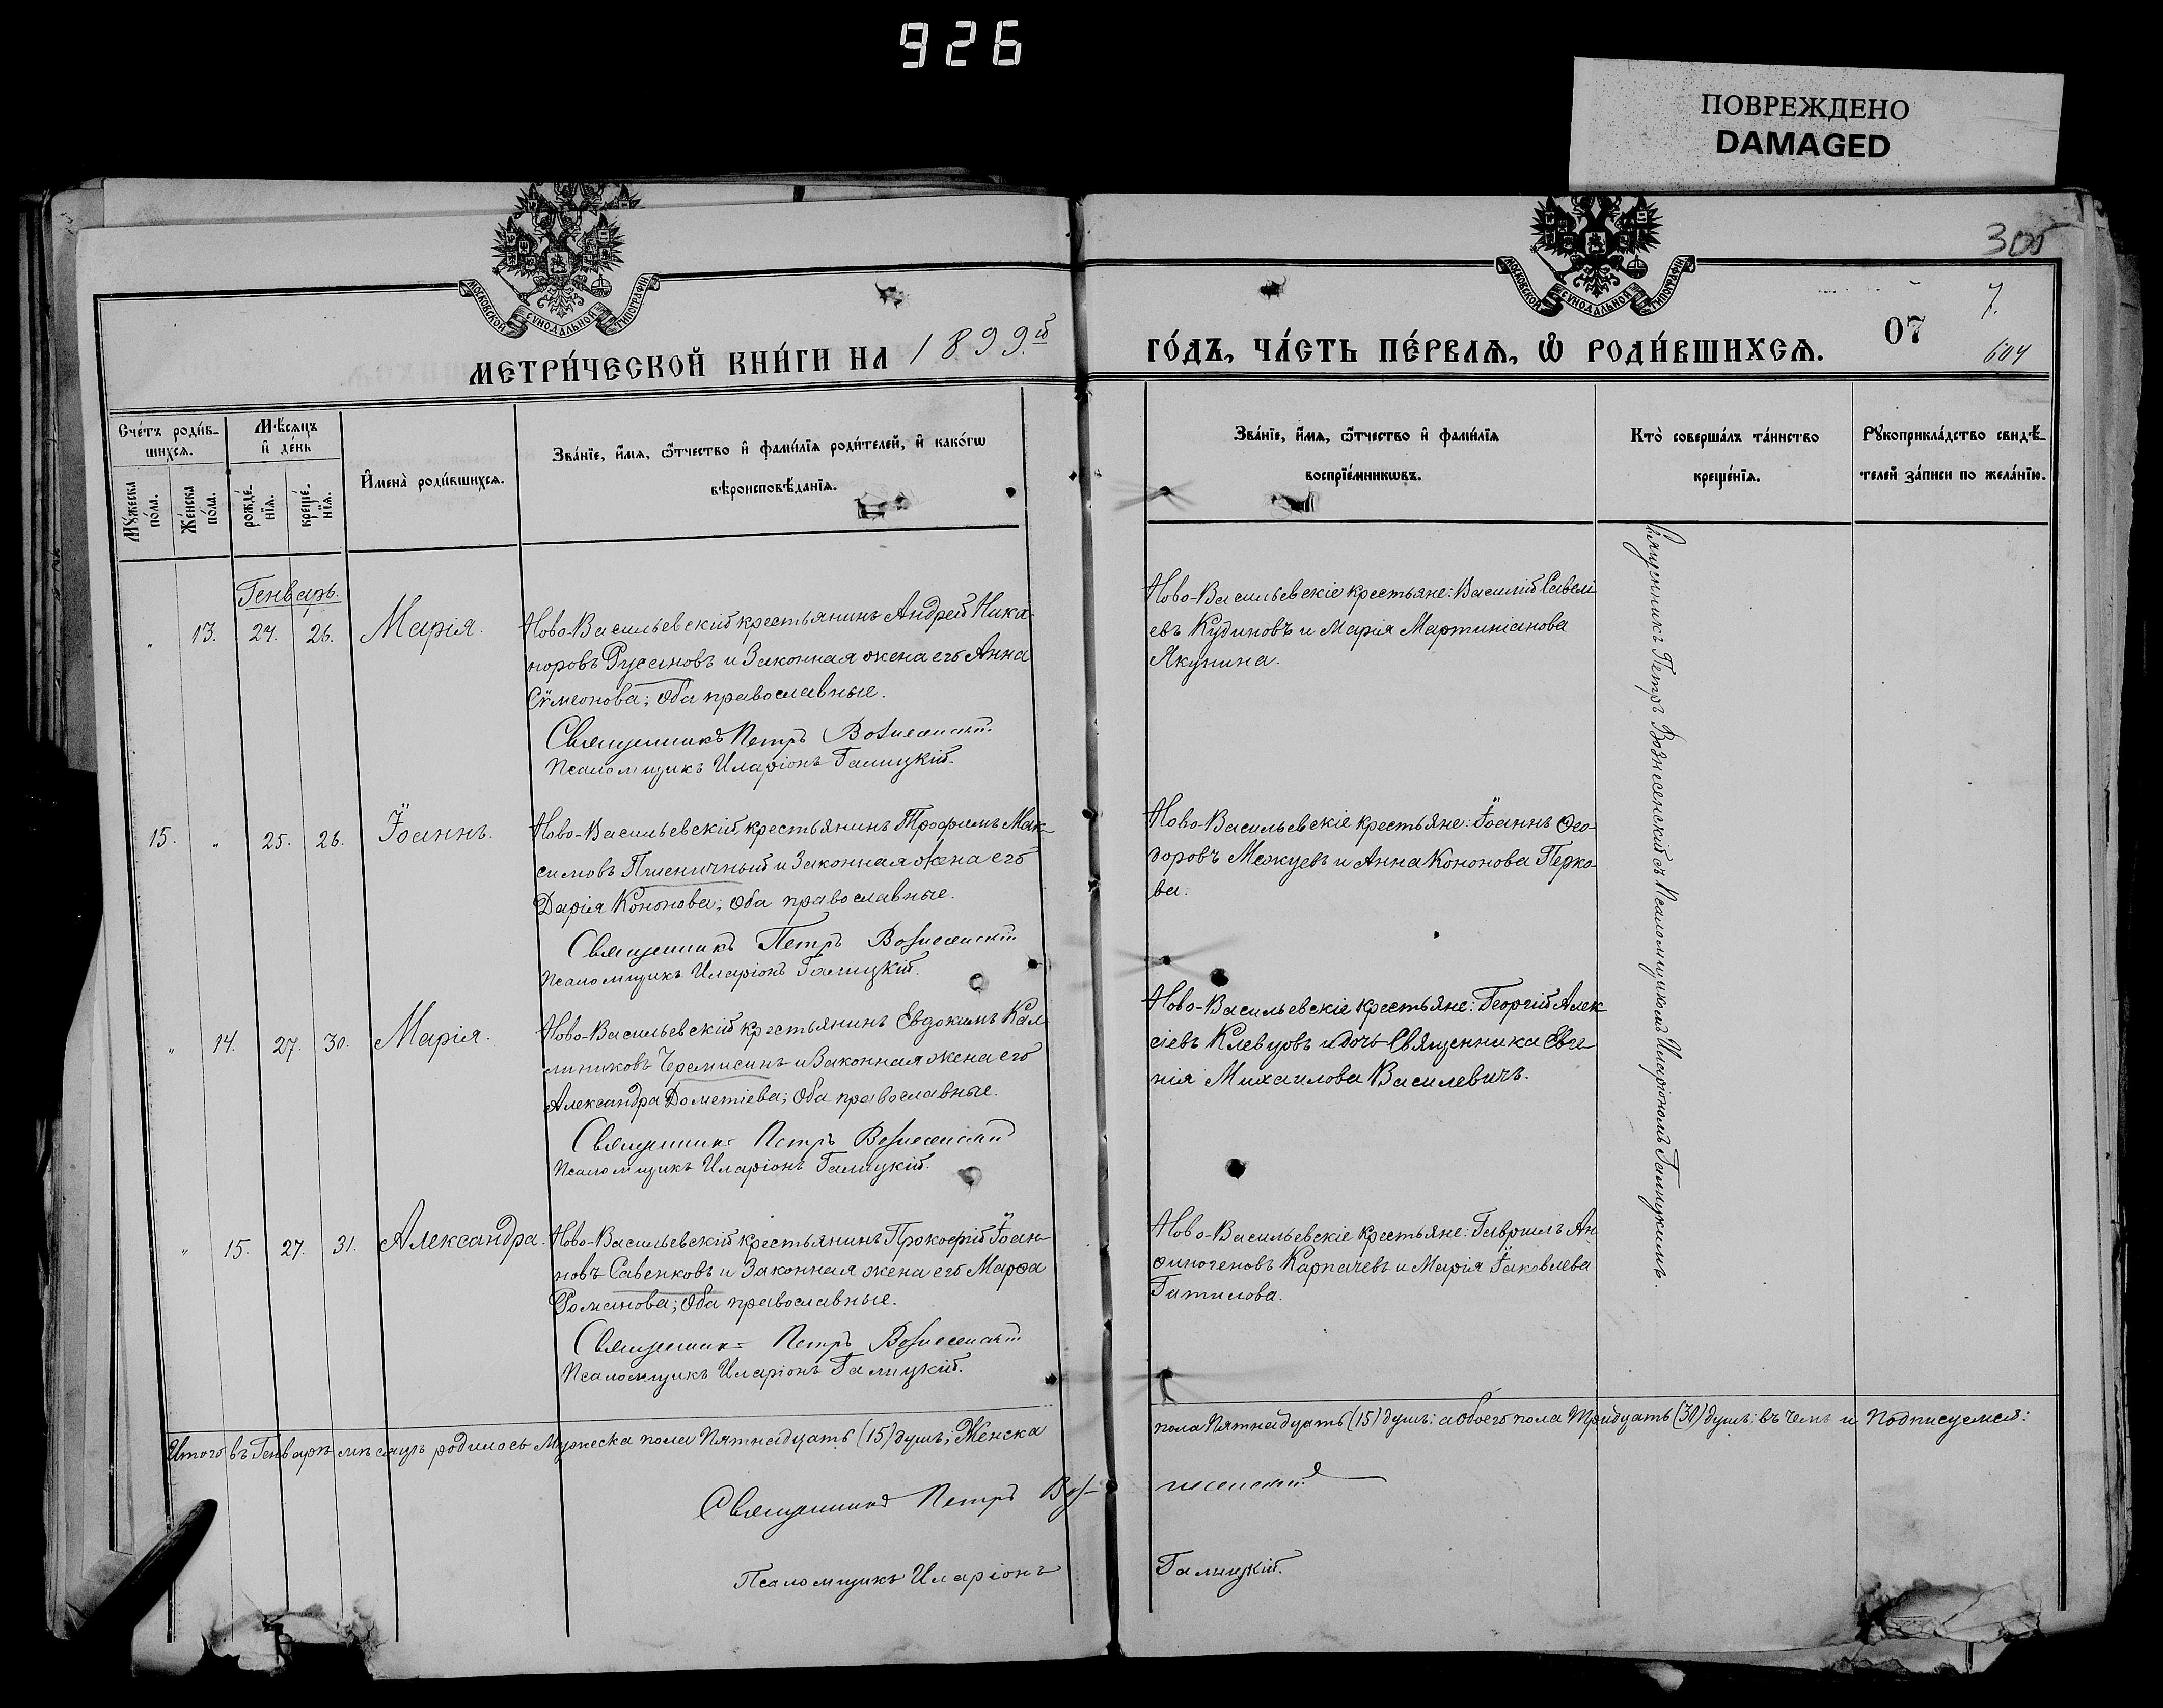 926
ПОВРЕЖДЕНО
DAMAGED
305
МОСКОВСКОЙ СѴНОДАЛЬНОЙ ТИПОГРАФІИ
МОСКОВСКОЙ СѴНОДАЛЬНОЙ ТИПОГРАФІИ
7.
07
604
МЕТРИ́ЧЕСКОЙ КНИ́ГИ НА 1899.й
ГО́ДЪ, ЧА́СТЬ ПЕ́РВАѦ, Ѽ РОДИ́ВШИХСѦ.
Сче́тъ роди́в-
шихсѧ.
Мѣ́сѧцъ
и҆ де́нь
Мꙋ́жеска
по́ла.
Же́нска
по́ла.
рожде́-
нїѧ.
креще́-
нїѧ.
И҆мена̀ роди́вшихсѧ.
Зва́нїе, и҆́мѧ, ѻ҆́тчество и҆ фами́лїѧ роди́телей, и҆ како́гѡ
вѣроисповѣ́данїѧ.
Зва́нїе, и҆́мѧ, ѻ҆́тчество и҆ фами́лїѧ
воспрїе́мникѡвъ.
Кто̀ соверша́лъ та́инство
креще́нїѧ.
Рꙋкоприкла́дство свидѣ́-
телей за́писи по жела́нїю.
Генварь.
" 13. 24. 26. Марія.
Ново-Васильевскій крестьянинъ Андрей Ника-
норовъ Русановъ и законная жена его Анна
Сѵмеонова; оба православные.
Священникъ Петръ Вознесенскій
Псаломщикъ Иларіонъ Галицкій.
Ново-Васильевскіе крестьяне: Василій Савелі
евъ Кудиновъ и Марія Мартиніанова
Якунина.
15. " 25. 26. Іоаннъ.
Ново-Васильевскій крестьянинъ Трофимъ Мак-
симовъ Пшеничный и законная жена его
Дарія Кононова; оба православные.
Священникъ Петръ Вознесенскій
Псаломщикъ Иларіонъ Галицкій.
Ново-Васильевскіе крестьяне: Іоаннъ Ѳео-
доровъ Межуевъ и Анна Кононова Перко-
ва.
" 14. 27. 30. Марія.
Ново-Васильевскій крестьянинъ Евдокимъ Кал-
линиковъ Черемисинъ и законная жена его
Александра Дометіева; оба православные.
Священникъ Петръ Вознесенскій
Псаломщикъ Иларіонъ Галицкій.
Ново-Васильевскіе крестьяне: Георгій Алек
сіевъ Клевцовъ и дочь Священника Евге-
нія Михаилова Василевичъ.
" 15. 27. 31. Александра.
Ново-Васильевскій крестьянинъ Прокофій Іоан-
новъ Савенковъ и законная жена его Марѳа
Романова; оба православные.
Священникъ Петръ Вознесенскій
Псаломщикъ Иларіонъ Галицкій.
Ново-Васильевскіе крестьяне: Гавріилъ Ан
финогеновъ Карпачевъ и Марія Іаковлева
Гатилова.
Священникъ Петръ Вознесенскій съ Псаломщикомъ Иларіономъ Галицкимъ.
Итого въ Генварѣ мѣсяцѣ родилось Мужеска пола Пятнадцать (15) душъ; Женска
пола Пятнадцать (15) душъ; а обоего пола Тридцать (30) душъ; въ чемъ и подписуемся:
Священникъ Петръ Воз-
несенскій
Псаломщикъ Иларіонъ
Галицкій.